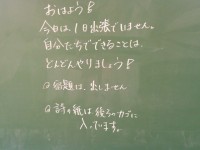 おはよう!
今日は1日出張でいません。
自分たちでできることは、
どんどんやりましょう!
宿題は、出しません
詩の紙は後ろのカゴに
入っています。